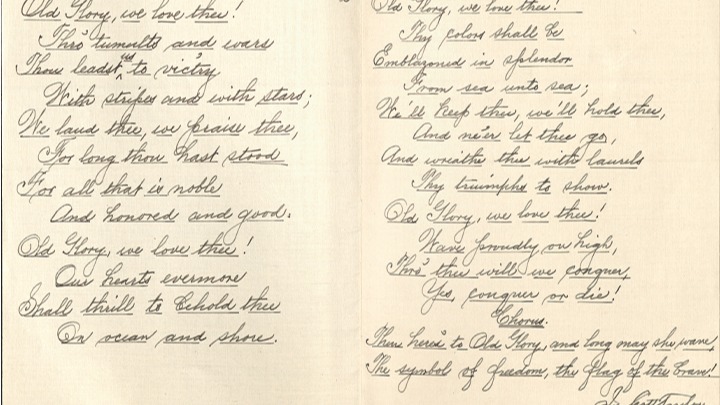 Old Glory, we love thee!
Thro' tumults and wars
Thou leadst us to vict'ry
With stripes and with stars;
We laud thee, we praise thee,
For long thou hast stood
For all that is noble
And honored and good.
Old Glory, we love thee!
Our hearts evermore
Shall thrill to behold thee
On ocean and shore.
Old Glory, we love thee!
Thy colors shall be
Emblazoned in splendor
From sea unto sea;
We'll keep thee, we'll hold thee,
And ne'er let thee go,
And wreathe thee with laurels
Thy triumphs to show.
Old Glory, we love thee!
Wave proudly on high,
Thro' thee will we conquer,
Yes, conquer or die!
Chorus.
Then here's to Old Glory, and long may she wave,
The symbol of freedom, the flag of the brave!